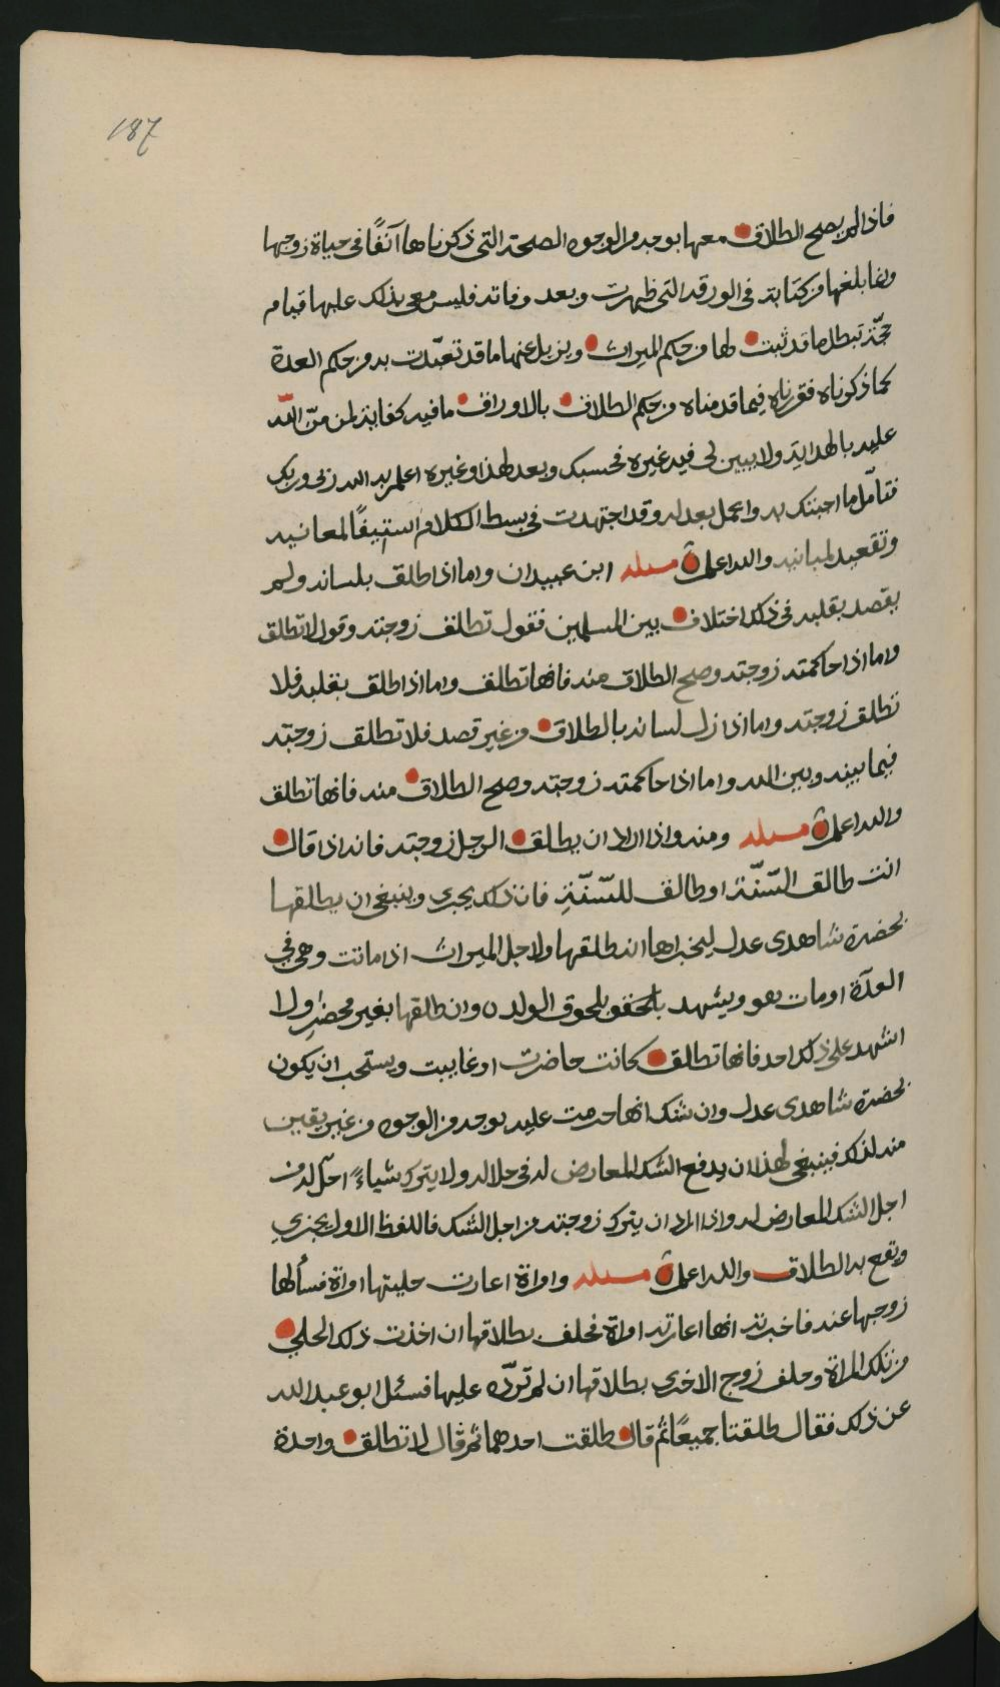 187
فاذا لم يصح الطلاق معها بوجه من الوجوه الصحيحة التي ذكرناها آنفًا في حياة زوجها
وانما بلغها من كتابة في الورقة التي ظهرت وبعد وفاته فليس معي بذلك عليها قيام
حجّة تبطل ما قد ثبت لها من حكم الميراث ويزيل عنها ما قد تعبّدت به من حكم العدة
كما ذكرناه فقررناه فيما قدمناه من حكم الطلاق بالاوراق ما فيه كفاية لمن منّ الله
عليه بالهداية ولا يبين لي فيه غيره فحسبك وبعد لهذا وغيره اعلم به الله ربي وربك
فتأمّل ما اجبتك به واعمل بعدله وقد اجتهدت في بسط الكلام استيفًا لمعانيه
وتقعيد لمبانيه والله اعلم مسئله ابن عبيدان واما اذا طلق بلسانه ولم
يقصد بقلبه في ذلك اختلاف بين المسلمين فقول تطلق زوجته وقول لا تطلق
واما اذا حاكمته زوجته وصح الطلاق منه فانها تطلق واما اذا طلق بقلبه فلا
تطلق زوجته واما اذا زل لسانه بالطلاق من غير قصد فلا تطلق زوجته
فيما بينه وبين الله واما اذا حاكمته زوجته وصح الطلاق منه فانها تطلق
والله اعلم مسئله ومنه واذا اراد ان يطلق الرجل زوجته فانه اذا قال
انت طالق السّنّة او طالق للسّنّةِ فان ذلك يجزي وينبغي ان يطلقها
بحضرة شاهدي عدل ليخبراها انه طلقها ولاجل الميراث اذا ماتت وهي في
العدّة او مات هو ويشهد بالحقو بلحوق الولد وان طلقها بغير محضرٍ ولا
اشهد على ذلك احد فانها تطلق كانت حاضرت او غايبت ويستحب ان يكون
بحضرة شاهدي عدل وان شك انها حرمت عليه بوجه من الوجوه من غير يقين
منه لذلك فينبغي لهذا ان يدفع الشك المعارض له في حلاله ولا يترك شياءً احلّ له من
اجل الشك المعارض له واذا اراد ان يترك زوجته من اجل الشك فاللفظ الاول يجزي
ويقع به الطلاق والله اعلم مسئله وامراة اعارت حليتها امراة فسألها
زوجها عنه فاخبرته انها اعارته امراة فحلف بطلاقها ان اخذت ذلك الحلي
من تلك المراة وحلف زوج الاخرى بطلاقها ان لم تردّه عليها فسئل ابو عبدالله
عن ذلك فقال طلقتا جميعًا ثم قال طلقت احدهما ثم قال لا تطلق واحدة